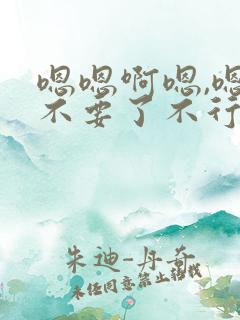 嗯嗯啊嗯,嗯
不要了不行
朱迪-丹奇
未经同意禁止转载